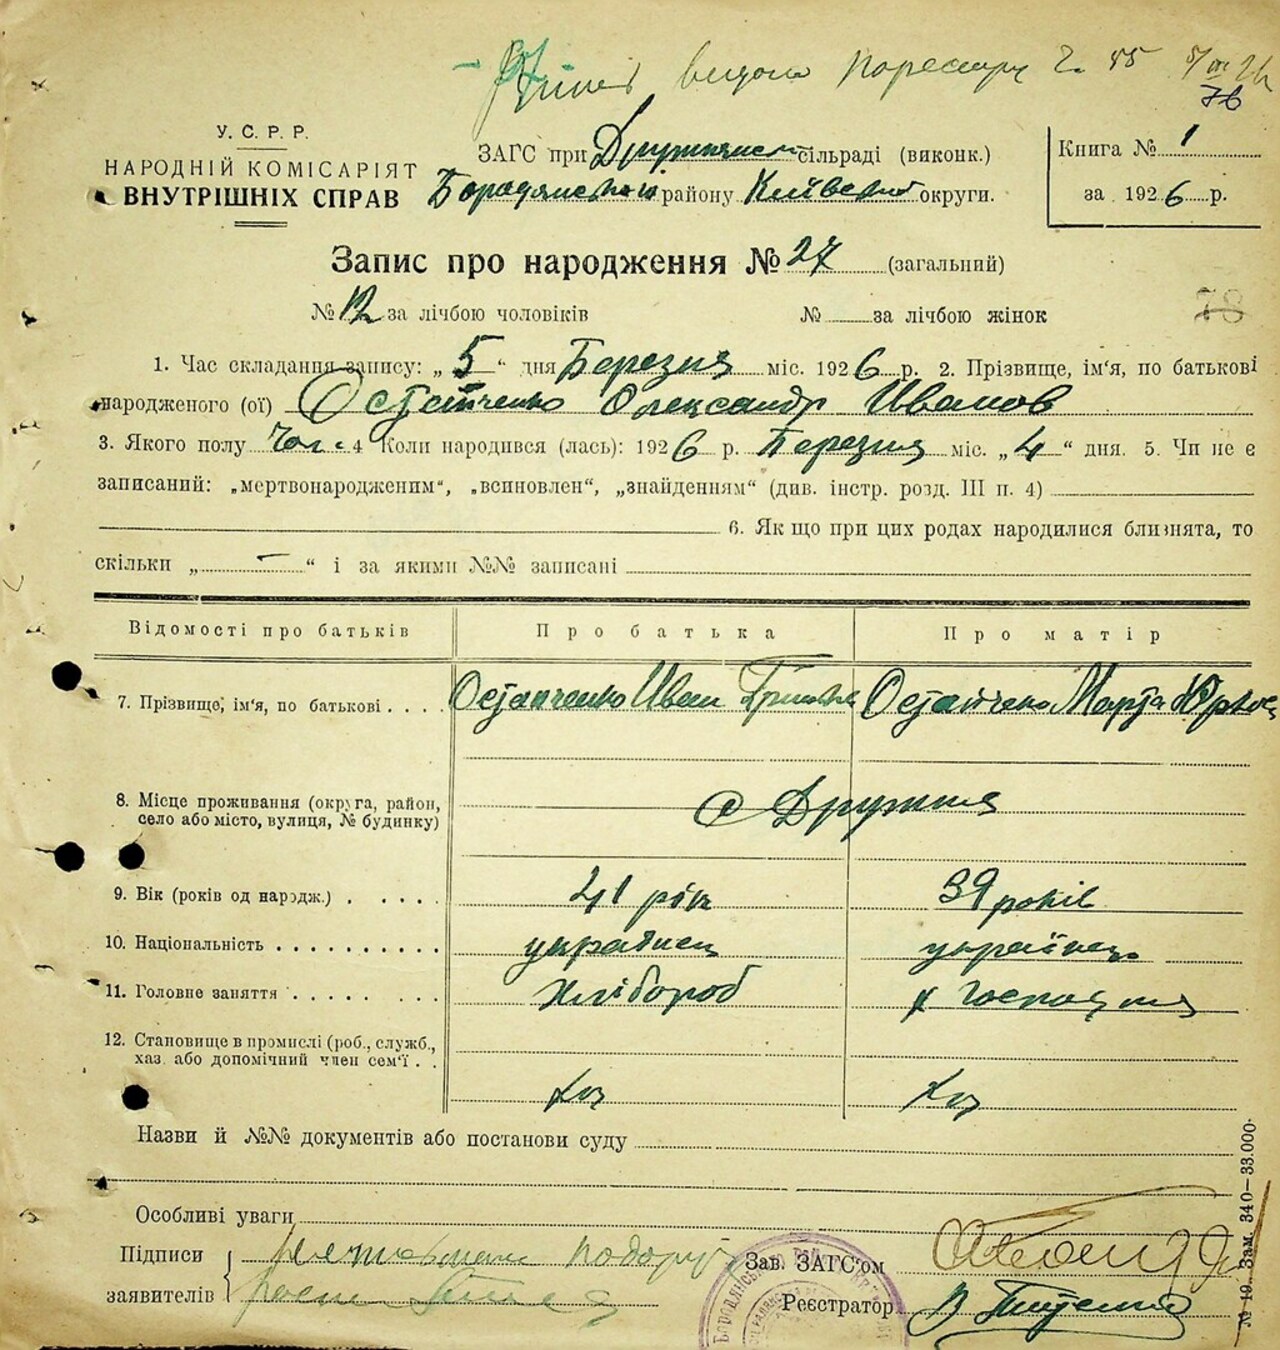 видана ч. 55
76
У. С. Р. Р.
НАРОДНІЙ КОМІСАРІЯТ
ВНУТРІШНІХ СПРАВ
ЗАГС при сільраді (виконк.)
району Київської округи.
Книга № 1
за 1926 р.
Запис про народження № 27 (загальний)
№ 12 за лічбою чоловіків № за лічбою жінок
78
1. Час складання запису: „5“ дня Березня міс. 1926 р. 2. Прізвище, ім'я, по батькові
народженого (ої) Остапченко Олександр Иванов
3. Якого полу Чол. 4 Коли народився (лась): 1926 р. Березня міс. „4“ дня. 5. Чи не є
записаний: „мертвонародженим“, „всиновлен“, „знайденням“ (див. інстр. розд. III п. 4)
6. Як що при цих родах народилися близнята, то
скільки „–“ і за якими №№ записані
Відомості про батьків Про батька Про матір
7. Прізвище, ім'я, по батькові . . . . Остапченко Иван Остапченко Марта
8. Місце проживання (округа, район,
село або місто, вулиця, № будинку)
с Дружня
9. Вік (років од народж.) . . . . . 41 рік 39 років
10. Національність . . . . . . . . . . українец українец
11. Головне заняття . . . . . . . . Хлібороб
12. Становище в промислі (роб., служб.,
хаз. або допомічний член сем'ї . .
Хоз Хоз
Назви й №№ документів або постанови суду
Особливі уваги
Підписи
заявителів
Зав. ЗАГС'ом
Реєстратор
№ 19. Зам. 340—33.000.